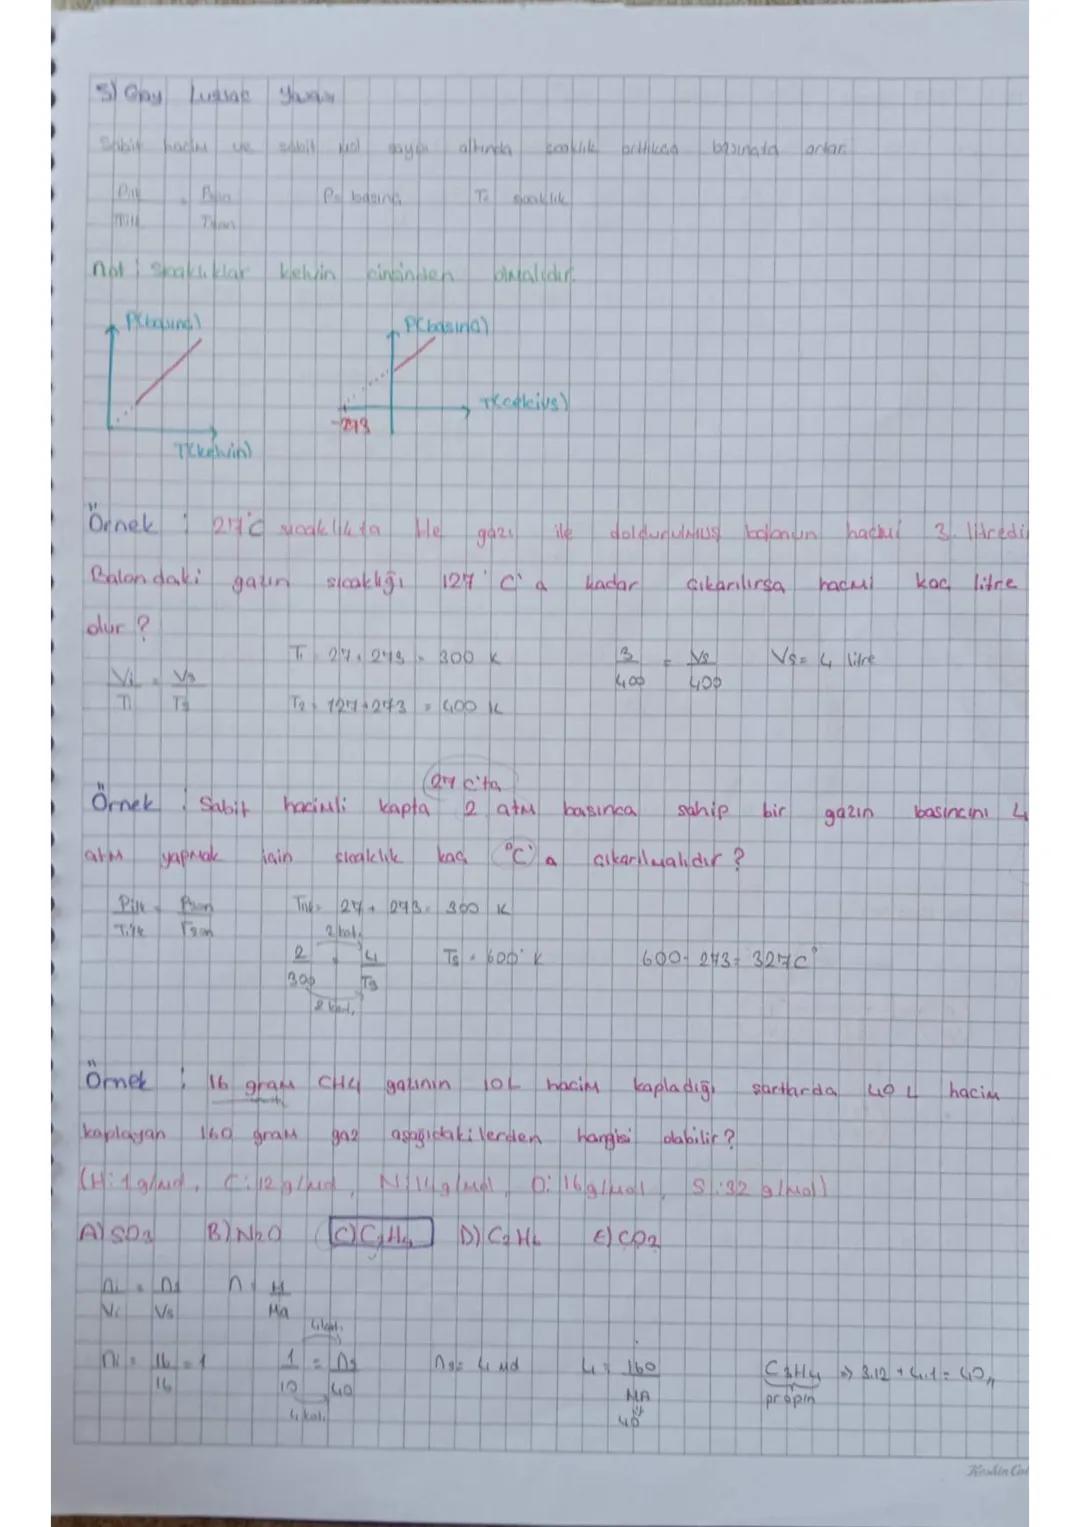 5) Gay Lussac Yasası
Sabit hacim ve sabit mol sayısı altında sıcaklık arttıkça basınçta artar.
Pilk = Pson P= basınç T= sıcaklık
Tilk Tson
not : Sıcaklıklar kelvin cinsinden olmalıdır.
P(basınç) P(basınç)
T(celcius)
-273
T(kelvin)
Örnek : 27°C sıcaklıkta He gazı ile doldurulmuş balonun hacmi 3 litredi
Balondaki gazın sıcaklığı 127°C'a kadar çıkarılırsa hacmi kaç litre
olur ?
T1 = 27+273 = 300 K 3/400 = Vs/400 Vs= 4 litre
Vi/Ti = Vs/Ts
T2 = 127+273 = 400 K
27 C'ta
Örnek : Sabit hacimli kapta 2 atm basınca sahip bir gazın basıncını 4
atm yapmak için sıcaklık kaç °C'a çıkarılmalıdır ?
Pilk/Tilk = Pson/Tson Tilk= 27+273= 300 K
2 kat.
2/300 = 4/Ts Ts = 600°K 600-273= 327C°
2 kat.
Örnek : 16 gram CH4 gazının 10L hacim kapladığı şartlarda 40 L hacim
kaplayan 160 gram gaz aşağıdakilerden hangisi olabilir ?
(H:1g/mol, C:12g/mol, N:14g/mol, O:16g/mol, S:32 g/mol)
A) SO2 B) N2O C) C3H4 D) C2H6 E) CO2
ni/Vi = ns/Vs n = M/Ma
4 kat.
ni = 16/16 = 1 1/10 = ns/40 ns= 4 mol 4 = 160/MA C3H4 => 3.12 + 4.1 = 40
4 kat. 40 propin
Keskin Co